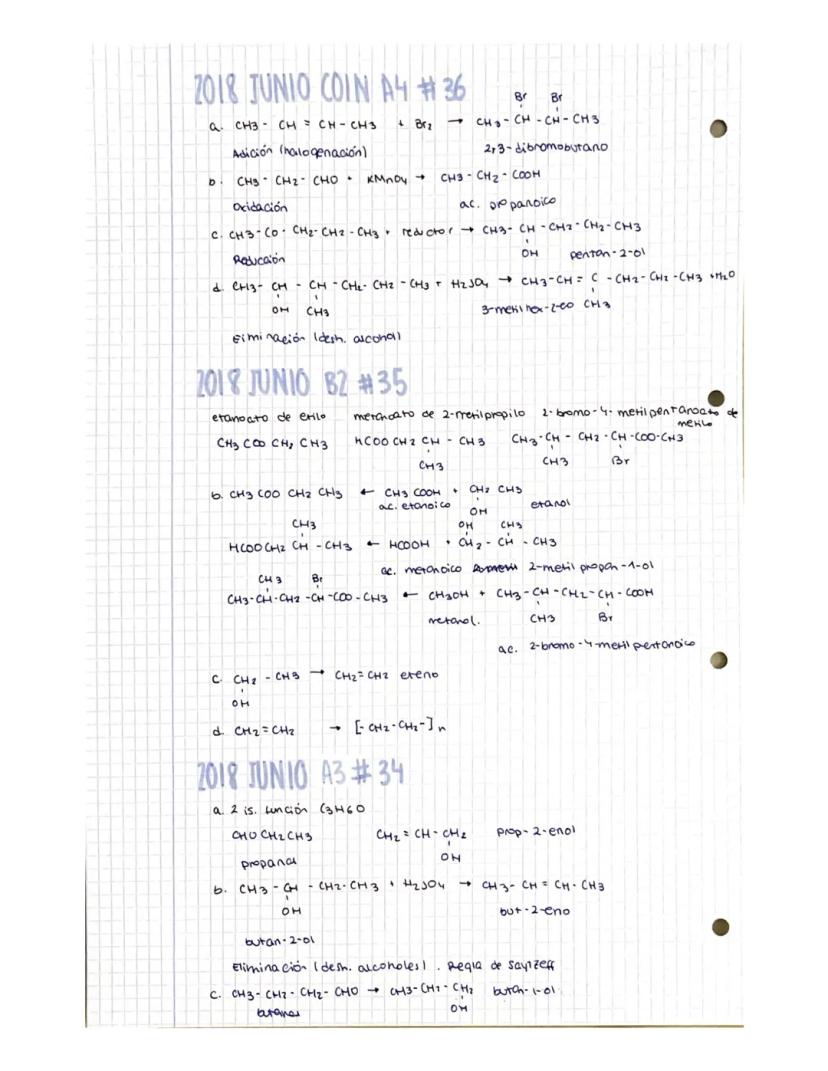 2018 JUNIO COIN A4 #36
Br Br
a. CH3 - CH = CH - CH3 + Br2 → CH3 - CH - CH - CH3
Adición (halogenación) 2,3-dibromobutano
b. CH3 - CH2 - CHO + KMnO4 → CH3 - CH2 - COOH
Oxidación ac. propanoico
c. CH3 - CO - CH2 - CH2 - CH3 + reductor → CH3 - CH - CH2 - CH2 - CH3
Reducción OH pentan-2-ol
d. CH3 - CH - CH - CH2 - CH2 - CH3 + H2SO4 → CH3-CH = C - CH2 - CH2 - CH3 + H2O
OH CH3 3-metilhex-2-eo CH3
Eliminación (desh. alcohol)
2018 JUNIO B2 #35
etanoato de etilo metanoato de 2-metilpropilo 2-bromo-4-metilpentanoato de
metilo
CH3 COO CH2 CH3 HCOO CH2 CH - CH3 CH3 - CH - CH2 - CH - COO - CH3
CH3 CH3 Br
b. CH3 COO CH2 CH3 ← CH3 COOH + CH2 CH3
ac. etanoico OH etanol
CH3 OH CH3
HCOO CH2 CH - CH3 ← HCOOH + CH2 - CH - CH3
ac. metanoico 2-metil propan-1-ol
CH3 Br
CH3 - CH - CH2 - CH - COO - CH3 ← CH3OH + CH3 - CH - CH2 - CH - COOH
metanol. CH3 Br
ac. 2-bromo-4-metilpentanoico
c. CH2 - CH3 → CH2 = CH2 eteno
OH
d. CH2 = CH2 → [-CH2-CH2-]n
2018 JUNIO A3 #34
a. 2 is. función C3H6O
CHO CH2 CH3 CH2 = CH - CH2 prop-2-enol
propanal OH
b. CH3 - CH - CH2 - CH3 + H2SO4 → CH3 - CH = CH - CH3
OH but-2-eno
butan-2-ol
Eliminación (desh. alcoholes). Regla de Saytzeff
c. CH3 - CH2 - CH2 - CHO → CH3 - CH2 - CH2 butan-1-ol
OH